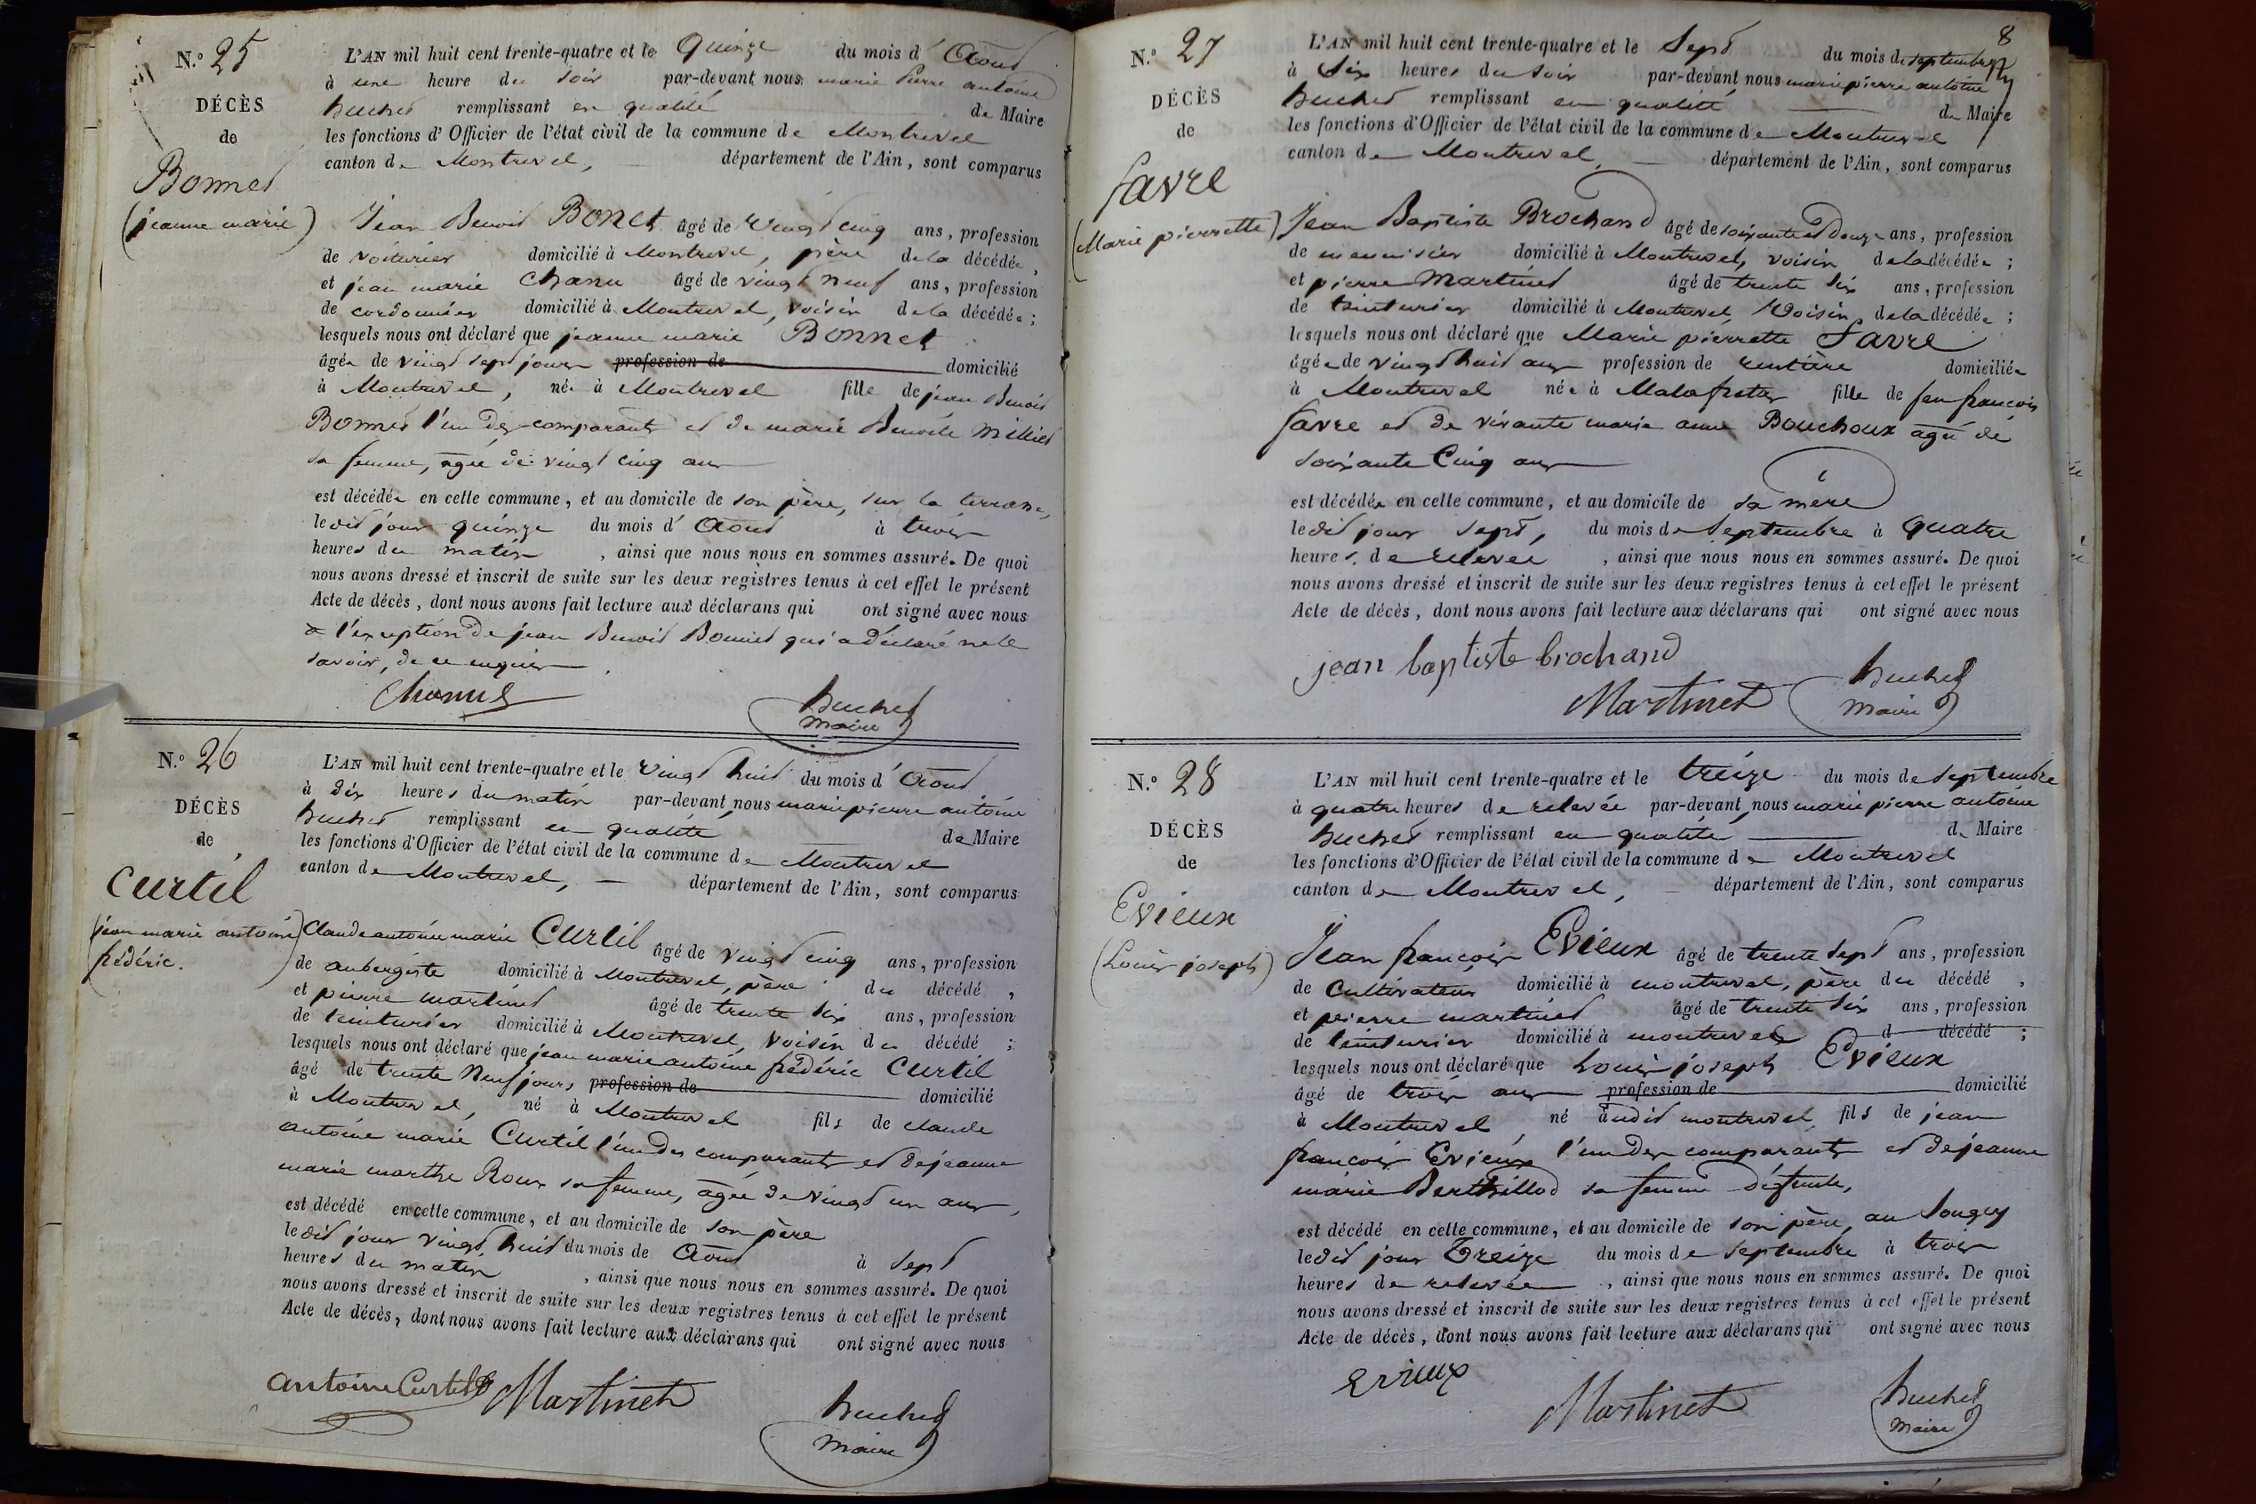 N.o 25
DÉCÈS
de
Bonnet
(jeanne marie)
L'AN mil huit cent trente-quatre et le quinze du mois d' Aout
à une heure du soir par-devant nous marie Pierre antoine
huchet remplissant en qualité de Maire
les fonctions d'Officier de l'état civil de la commune de Montrevel
canton de Montrevel, département de l'Ain, sont comparus
Jean Benoit Bonet âgé de vingt cinq ans, profession
de voiturier domicilié à Montrevel, père de la décédée,
et jean marie Chanu âgé de vingt neuf ans, profession
de cordonnier domicilié à Montrevel, voisin de la décédée;
lesquels nous ont déclaré que jeanne marie Bonnet
âgée de vingt sept jours profession de domicilié
à Montrevel, née à Montrevel fille de jean Benoit
Bonnet l'un des comparants et de marie Benoite Milliet
sa femme, agée de vingt cinq ans
est décédée en cette commune, et au domicile de son père, sur la terrasse,
ledit jour quinze du mois d' Aout à trois
heures du matin, ainsi que nous nous en sommes assuré. De quoi
nous avons dressé et inscrit de suite sur les deux registres tenus à cet effet le présent
Acte de décès, dont nous avons fait lecture aux déclarans qui ont signé avec nous
a l'exeption de jean Benoit Bonnet qui a déclaré ne le
savoir, de ce enquis
huchet
Maire
N.o 26
DÉCÈS
de
Curtil
(jean marie antoine
frédéric.)
L'AN mil huit cent trente-quatre et le vingt huit du mois d' Aout
à dix heures du matin par-devant nous marie pierre antoine
huchet remplissant en qualité de Maire
les fonctions d'Officier de l'état civil de la commune de Montrevel
canton de Montrevel, département de l'Ain, sont comparus
Claude antoine marie Curtil âgé de vingt cinq ans, profession
de aubergiste domicilié à Montrevel, père du décédé,
et pierre martinet âgé de trente six ans, profession
de teinturier domicilié à Montrevel, voisin du décédé;
lesquels nous ont déclaré que jean marie antoine frédéric Curtil
âgé de trente neuf jours profession de domicilié
à Montrevel, né à Montrevel fils de claude
antoine marie Curtil l'un des comparants et de jeanne
marie marthe Roux sa femme, agée de vingt un ans,
est décédé en cette commune, et au domicile de son père
ledit jour vingt huit du mois de Aout à sept
heures du matin, ainsi que nous nous en sommes assuré. De quoi
nous avons dressé et inscrit de suite sur les deux registres tenus à cet effet le présent
Acte de décès, dont nous avons fait lecture aux déclarans qui ont signé avec nous
antoine Curtil Martinet
huchet
Maire
8
N.o 27
DÉCÈS
de
favre
(Marie pierrette)
L'AN mil huit cent trente-quatre et le sept du mois de septembre
à six heures du soir par-devant nous marie pierre antoine
huchet remplissant en qualité de Maire
les fonctions d'Officier de l'état civil de la commune de Montrevel
canton de Montrevel, département de l'Ain, sont comparus
Jean Baptiste Brochand âgé de soixante et douze ans, profession
de menuisier domicilié à Montrevel, voisin de la décédée;
et pierre Martinet âgé de trente six ans, profession
de teinturier domicilié à Montrevel, voisin de la décédée;
lesquels nous ont déclaré que Marie pierrette Favre
âgée de vingt huit ans profession de rentière domiciliée
à Montrevel née à Malafretaz fille de feu françois
favre et de vivante marie anne Bouchoux agée de
soixante Cinq ans
est décédée en cette commune, et au domicile de sa mère
ledit jour sept, du mois de Septembre à quatre
heures de relevee, ainsi que nous nous en sommes assuré. De quoi
nous avons dressé et inscrit de suite sur les deux registres tenus à cet effet le présent
Acte de décès, dont nous avons fait lecture aux déclarans qui ont signé avec nous
jean baptiste brochand
Martinet
huchet
Maire
N.o 28
DÉCÈS
de
Evieux
(Louis joseph)
L'AN mil huit cent trente-quatre et le treize du mois de septembre
à quatre heures de relevée par-devant nous marie pierre antoine
huchet remplissant en qualité de Maire
les fonctions d'Officier de l'état civil de la commune de Montrevel
canton de Montrevel, département de l'Ain, sont comparus
Jean françois Evieux âgé de trente sept ans, profession
de Cultivateur domicilié à montrevel, père du décédé,
et pierre martinet âgé de trente six ans, profession
de teinturier domicilié à montrevel d décédé;
lesquels nous ont déclaré que Louis joseph Evieux
âgé de trois ans profession de domicilié
à Montrevel, né audit montrevel, fils de jean
françois Evieux l'un des comparants et de jeanne
marie Berthillod sa femme défunte,
est décédé en cette commune, et au domicile de son père, au Sougey
ledit jour Treize du mois de septembre à trois
heures de relevée, ainsi que nous nous en sommes assuré. De quoi
nous avons dressé et inscrit de suite sur les deux registres tenus à cet effet le présent
Acte de décès, dont nous avons fait lecture aux déclarans qui ont signé avec nous
Evieux
Martinet
huchet
Maire